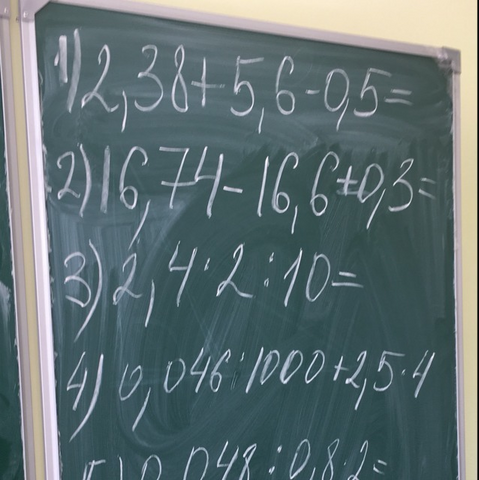 1) 2,38+5,6-0,5=
2) 16,74-16,6+0,3=
3) 2,4·2:10=
4) 0,046·1000+2,5·4
5) 0,048:0,8·2=